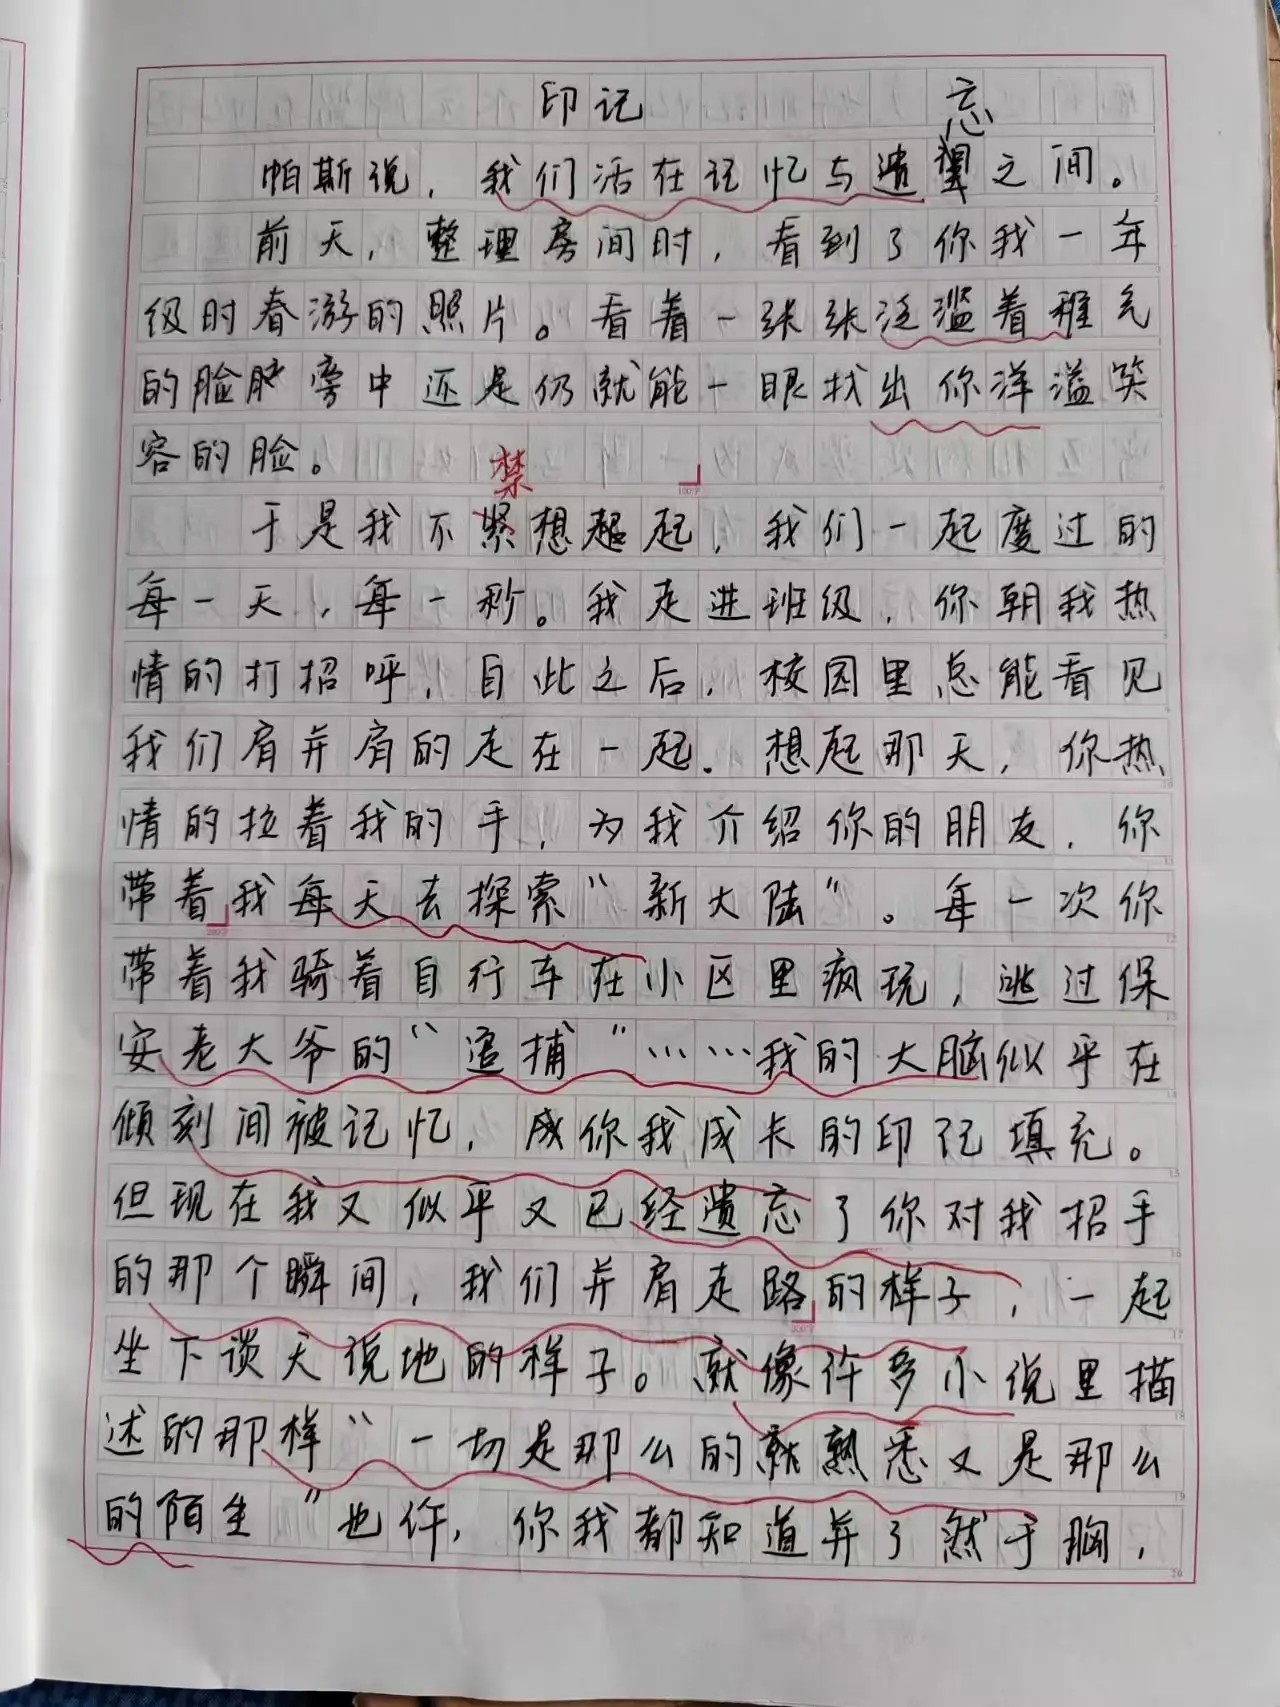 印记
忘
帕斯说，我们活在记忆与遗之间。
前天，整理房间时，看到了你我一年
级时春游的照片。看着一张张泛滥着稚气
的脸旁中还是仍就能一眼找出你洋溢笑
容的脸。
禁
于是我不紧想起起，我们一起度过的
每一天，每一秒。我走进班级，你朝我热
情的打招呼，自此之后，校园里总能看见
我们肩并肩的走在一起．想起那天，你热
情的拉着我的手，为我介绍你的朋友．你
带着我每天去探索“新大陆”。每一次你
带着我骑着自行车在小区里疯玩，逃过保
安老大爷的“追捕”……我的大脑似乎在
倾刻间被记忆，成你我成长的印记填充。
但现在我又似乎又已经遗忘了你对我招手
的那个瞬间，我们并肩走路的样子，一起
坐下谈天说地的样子。就像许多小说里描
述的那样“一切是那么的熟悉又是那么
的陌生”也许，你我都知道并了然于胸，